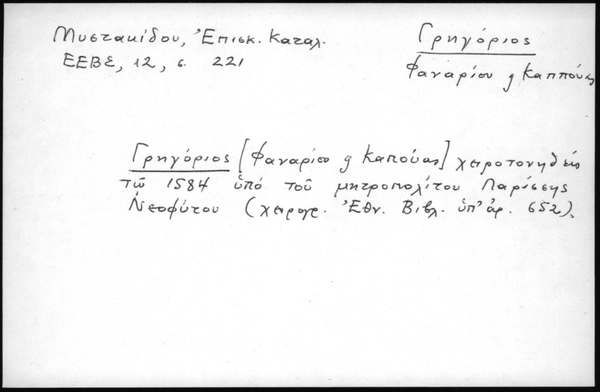 Μυστακίδου, Ἐπισκ. Καταλ.
ΕΕΒΣ, 12, σ. 221
Γρηγόριος
Φαναρίου ȣ Καππούας
Γρηγόριος [Φαναρίου ȣ Καπούας] χειροτονηθείς
τῷ 1584 ὑπό τοῦ μητροπολίτου Λαρίσσης
Νεοφύτου (χειρογρ. Ἐθν. Βιβλ. ὑπ' ἀρ. 652).